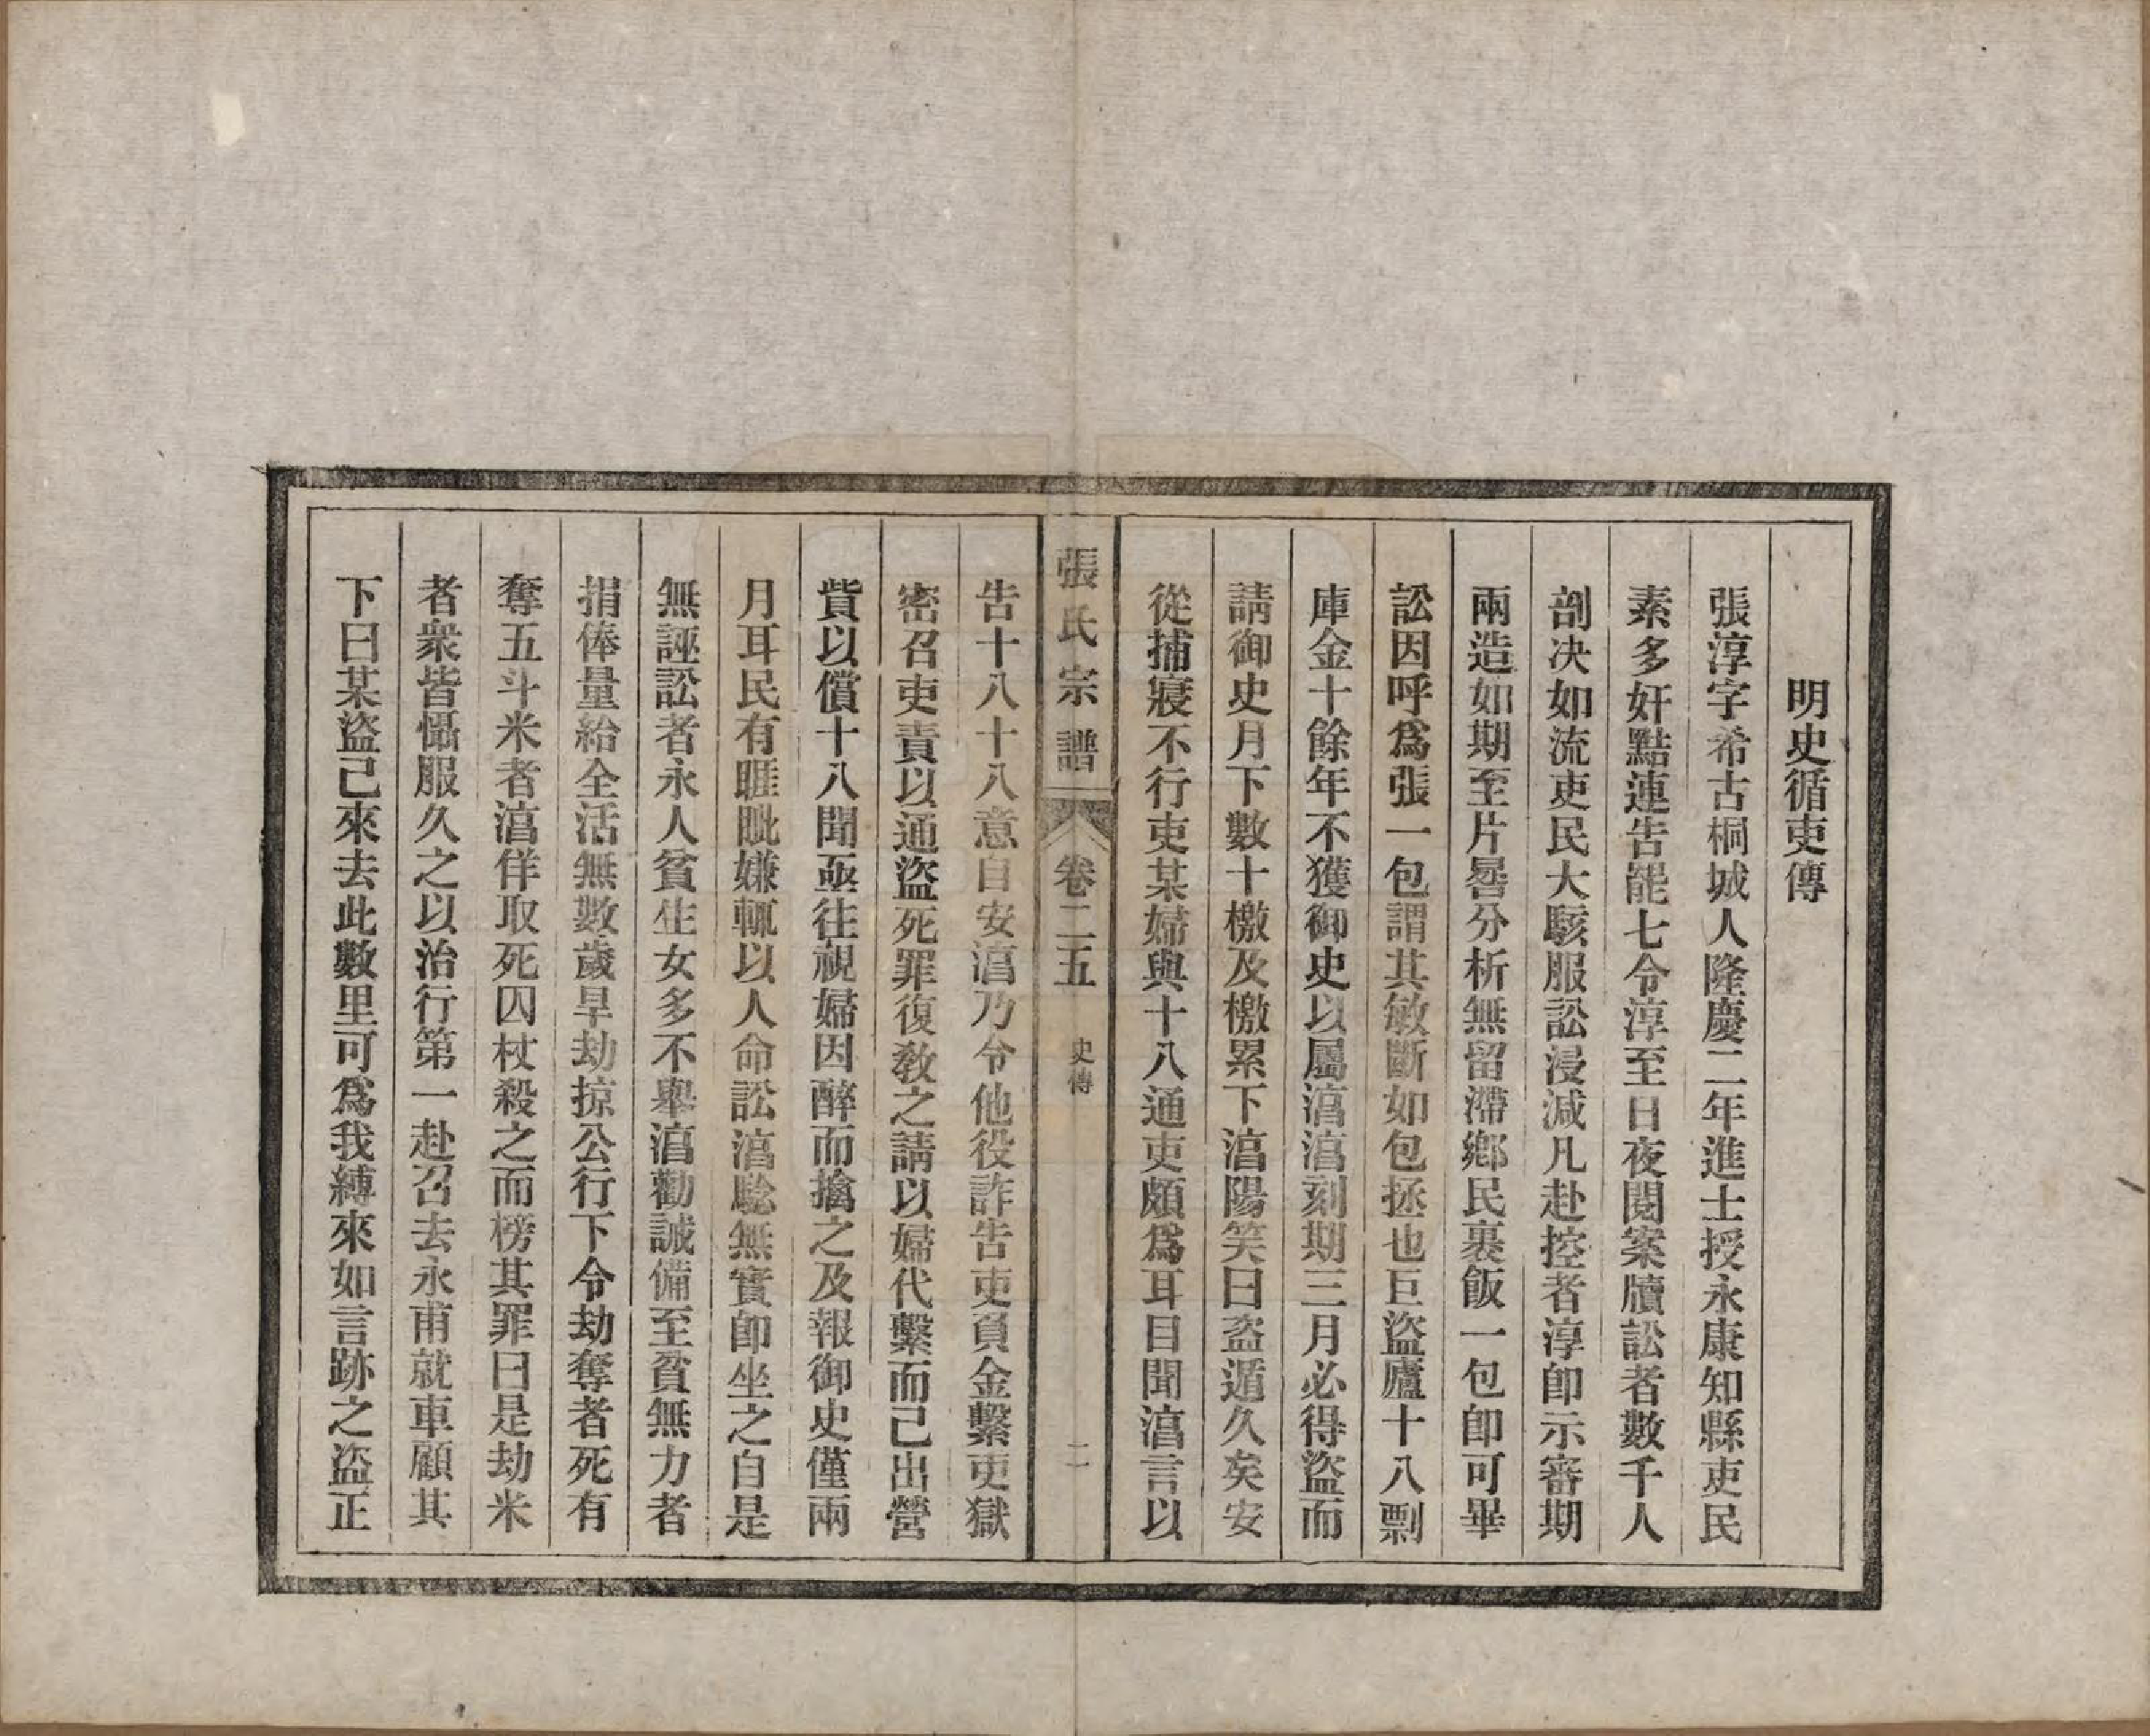 明史循吏傳
張淳字希古桐城人隆慶二年進士授永康知縣吏民
素多奸黠連告罷七令淳至日夜閱案牘訟者數千人
剖决如流吏民大駭服訟浸減凡赴控者淳卽示審期
兩造如期至片晷分析無留滯鄉民裹飯一包卽可畢
訟因呼爲張一包謂其敏斷如包拯也巨盜廬十八剽
庫金十餘年不獲御史以屬湻湻刻期三月必得盜而
請御史月下數十檄及檄累下湻陽笑曰盗遁久矣安
從捕寢不行吏某婦與十八通吏頗爲耳目聞湻言以
張氏宗譜 卷二五 史傳 二
告十八十八意自安湻乃令他役詐告吏負金繫吏獄
密召吏責以通盜死罪復敎之請以婦代繫而己出營
貲以償十八聞亟往視婦因醉而擒之及報御史僅兩
月耳民有睚眦嫌輒以人命訟湻驗無實卽坐之自是
無誣訟者永人貧生女多不舉湻勸誡備至貧無力者
捐俸量給全活無數歲旱劫掠公行下令劫奪者死有
奪五斗米者湻佯取死囚杖殺之而榜其罪曰是劫米
者衆皆懾服久之以治行第一赴召去永甫就車顧其
下曰某盜己來去此數里可爲我縛來如言跡之盜正